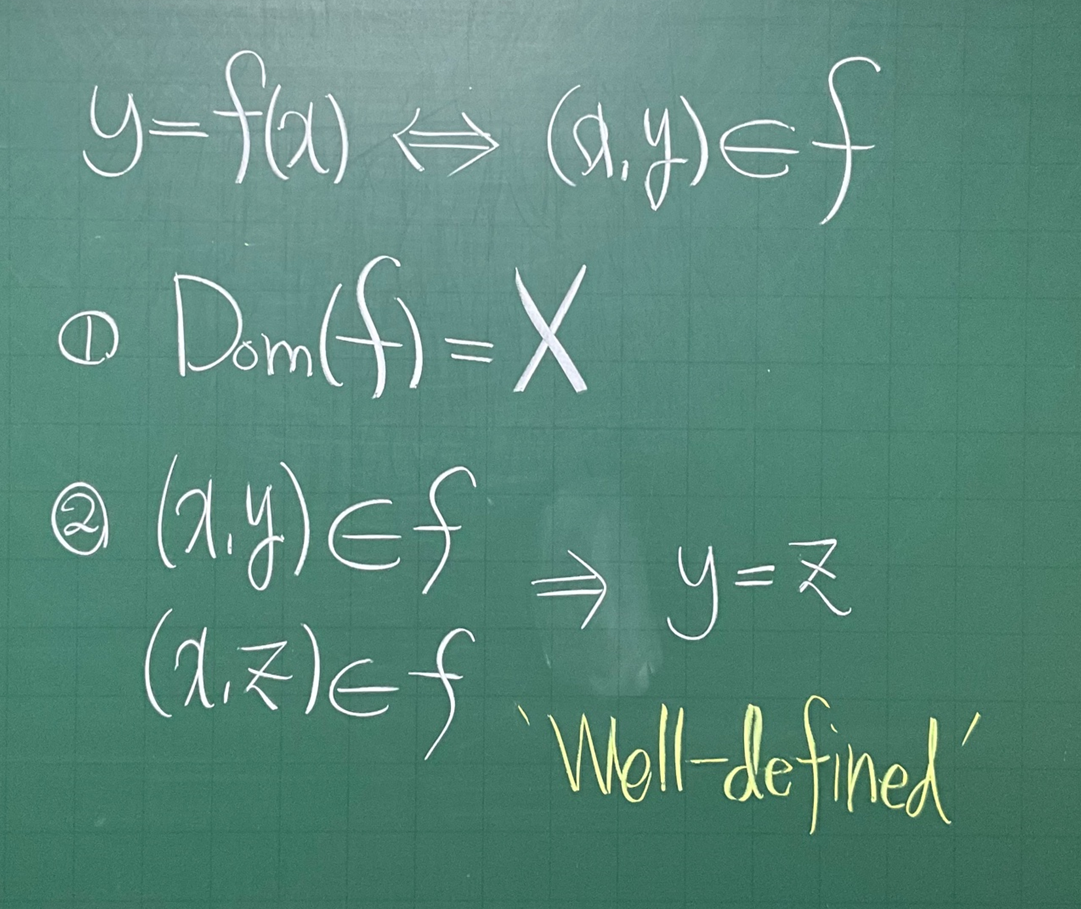 y=f(x) ⇔ (x,y)∈f
① Dom(f)=X
② (x,y)∈f
(x,z)∈f
⇒ y=z
'Well-defined'